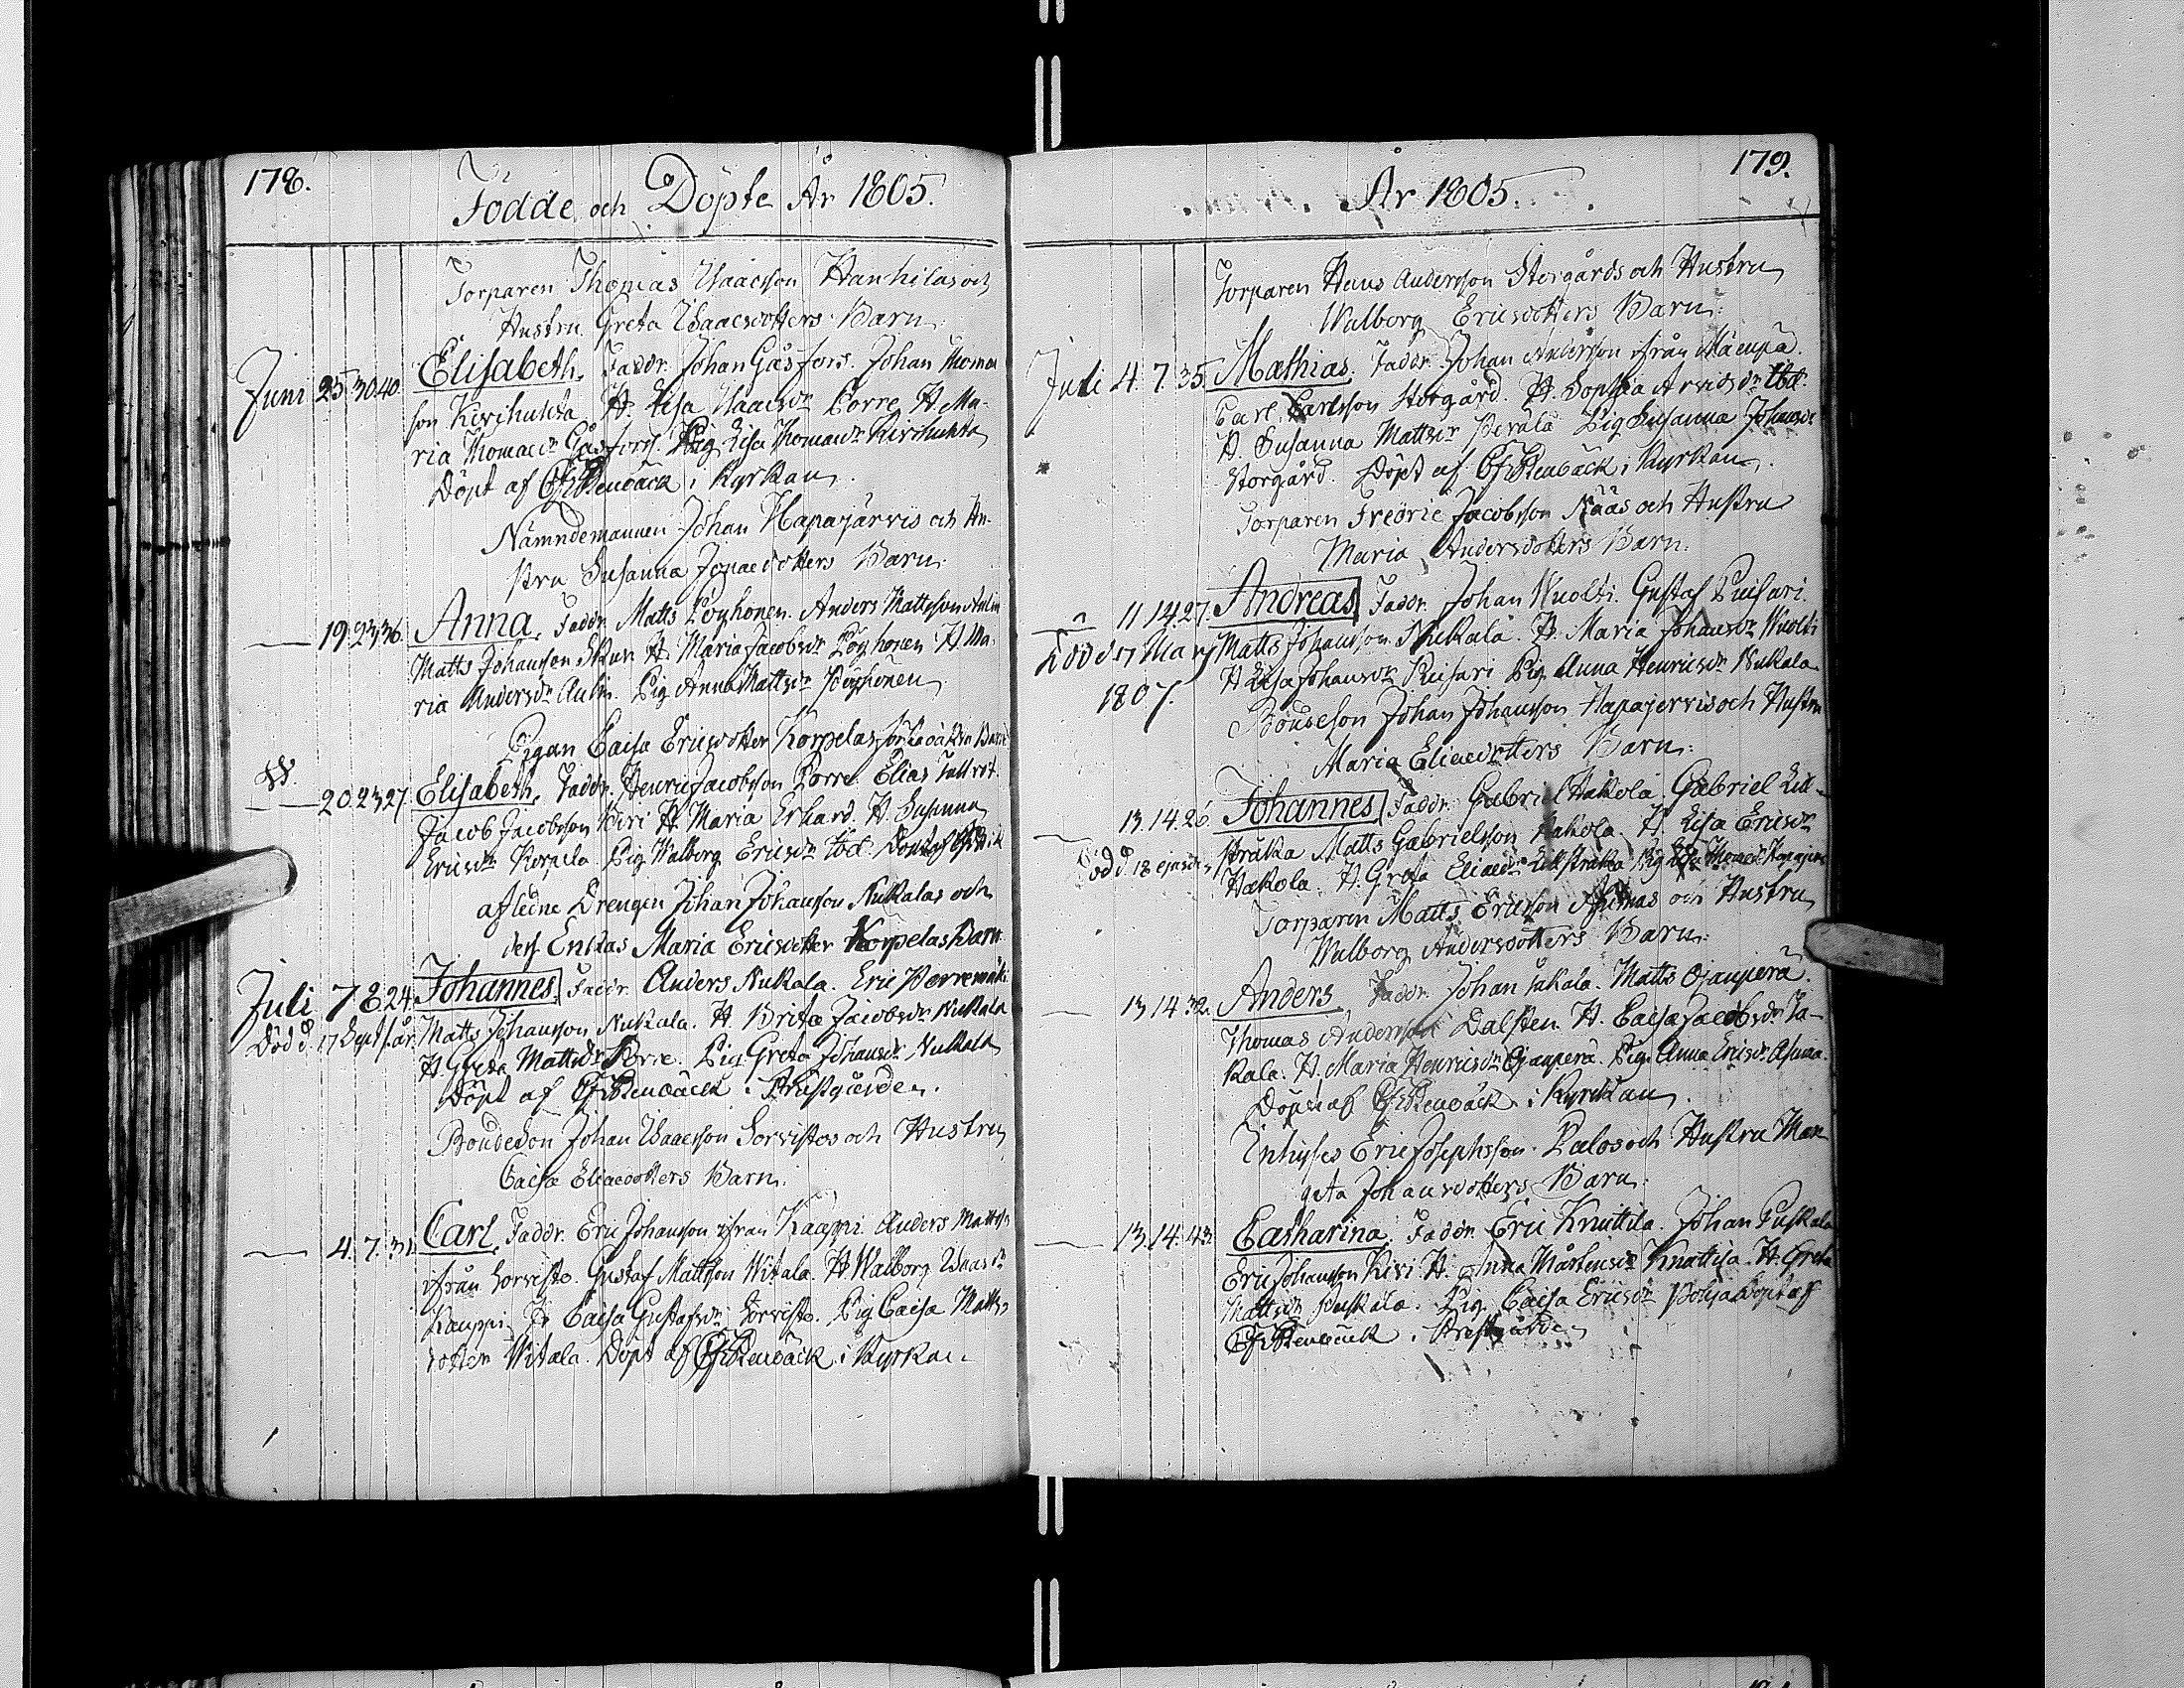 178.
Födde och Döpte År 1805.
Torparen Thomas Isaacsson Hanhilas och
Hustru Greta Isaacsdotters Barn:
Juni 25. 30. 40. Elisabeth. Faddr. Johan Gåsfors. Johan Thomas
son Kivihuhta. H. Lisa Isaacsdr Porre H. Ma-
ria Thomasdr Gåsfors. Pig. Lisa Thomasdr Kivihuhta
Döpt af i Kyrkan.
Nämndemannen Johan Hapajärvis och Hu-
stru Susanna Jonaedotters Barn:
19. 23. 36. Anna. Faddr. Matts Pöyhonen. Anders Mattsson Aulin
Matts Johansson H. Maria Jacobsdr Pöyhonen H. Ma-
ria Andersdr Aulin. Pig. Anna Mattsdr Pöyhönen
Pigan Caisa Ericsdotter Korpelas Barn
20. 23. 27. Elisabeth. Faddr. Henric Jacobsson Porre. Elias
Jacob Jacobsson H. Maria Erhard. H. Susanna
Ericsdr Korpela. Pig. Walborg Ericsdr ibd. Döpt af
aflidne Drengen Johan Johansson Nukalas och
dess Enkas Maria Ericsdotter Korpelas Barn
Juli 7. 8. 24. Johannes. Faddr. Anders Nukala. Eric Porremäki
Död d. 17 Sept. s. år. Matts Johansson Nukala. H. Brita Jacobsdr Nukala
H. Greta Mattsdr Porre. Pig. Greta Johansdr Nukala
Döpt af i Prestgården.
Bondeson Johan Isaacsson Sorvistos och Hustru
Caisa Eliaedotters Barn:
4. 7. 31. Carl. Faddr. Eric Johansson ifrån Kauppi Anders Mattss
ifrån Sorvisto. Gustaf Mattsson Witala. H. Walborg Isaasdr
Kauppi. H. Caisa Gustafsdr Sorvisto. Pig. Caisa Matts
dotter Witala. Döpt af i Kyrkan.
179.
År 1805.
Torparen Hans Andersson Storgårds och Hustru
Walborg Ericsdotters Barn:
Juli 4. 7. 35. Mathias. Faddr. Johan Andersson ifrån
Carl Carlsson Storgård. H. Sophia Arvidsdr ibd.
H. Susanna Mattsdr Perälä Pig. Susanna Johansdr
Storgård. Döpt af i Kyrkan.
Torparen Fredric Jacobsson Nääs och Hustru
Maria Andersdotters Barn:
11. 14. 27. Andreas. Faddr. Johan Wuolti. Gustaf Puisari.
död d. 17 Mars Matts Johansson Nukala. H. Maria Johansdr Wuolti
1807. H. Lisa Johansdr Puisari Pig. Anna Henricsdr Nukala
Bondeson Johan Johansson Hapajervis och Hustru
Maria Eliaedotters Barn:
13. 14. 26. Johannes. Faddr. Gabriel Hakola. Gabriel Lill-
Död d. 18 ejusdem straka Matts Gabrielsson Hakola. H. Lisa Ericsdr
Hakola. H. Greta Eliaedr Lillstraka Pig. Lisa Thomaedr Hapajerv
Torparen Matts Ericsson Asunmas och Hustru
Walborg Andersdotters Barn:
13. 14. 32. Anders. Faddr. Johan Jakala. Matts Ojanperä.
Thomas Andersson Dalsten. H. Caisa Jacobsdr Ja-
kala. H. Maria Henricsdr Ojanperä. Pig. Anna Ericsdr Asunma.
Döpt af i Kyrkan.
Inhyses Eric Josephsson Palos och Hustru Mar
geta Johansdotters Barn:
13. 14. 43. Catharina. Faddr. Eric Knuttila. Johan Puskala
Eric Johansson Kivi H. Anna Mårtensdr Knuttila. H. Greta
Mattsdr Puskala. Pig. Caisa Ericsdr Pohja Döpt af
i Prestgården